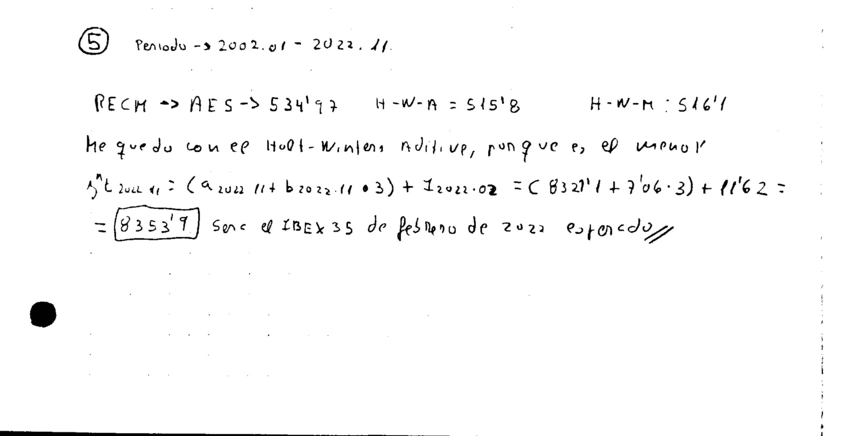 ⑤ Periodo -> 2002.01 - 2022.11.
RECM => AES -> 534'97 H-W-A = 515'8 H-W-M : 516'1
Me quedo con el Holt-Winters Aditivo, porque es el menor
ŷt 2022 11 = (a 2022 11 + b 2022.11 • 3) + I 2022.02 = (8321'1 + 7'06 · 3) + 11'62 =
= 8353'9 Sera el IBEX 35 de febrero de 2022 esperado //